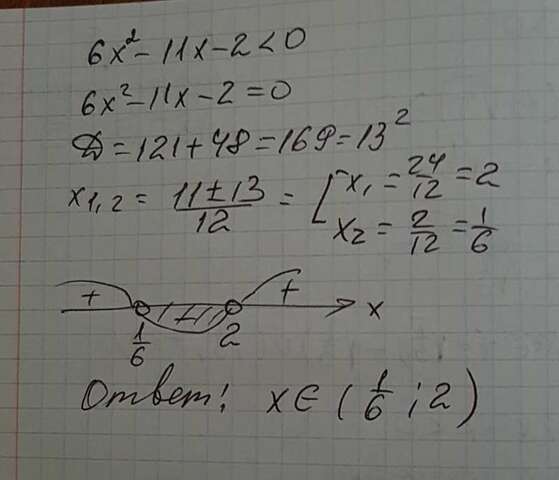 6x² - 11x - 2 < 0
6x² - 11x - 2 = 0
D = 121 + 48 = 169 = 13²
x1,2 = (11 ± 13)/12 = [ x1 = 24/12 = 2
x2 = 2/12 = 1/6
+ - + x
1/6 2
Ответ: x ∈ (1/6 ; 2)